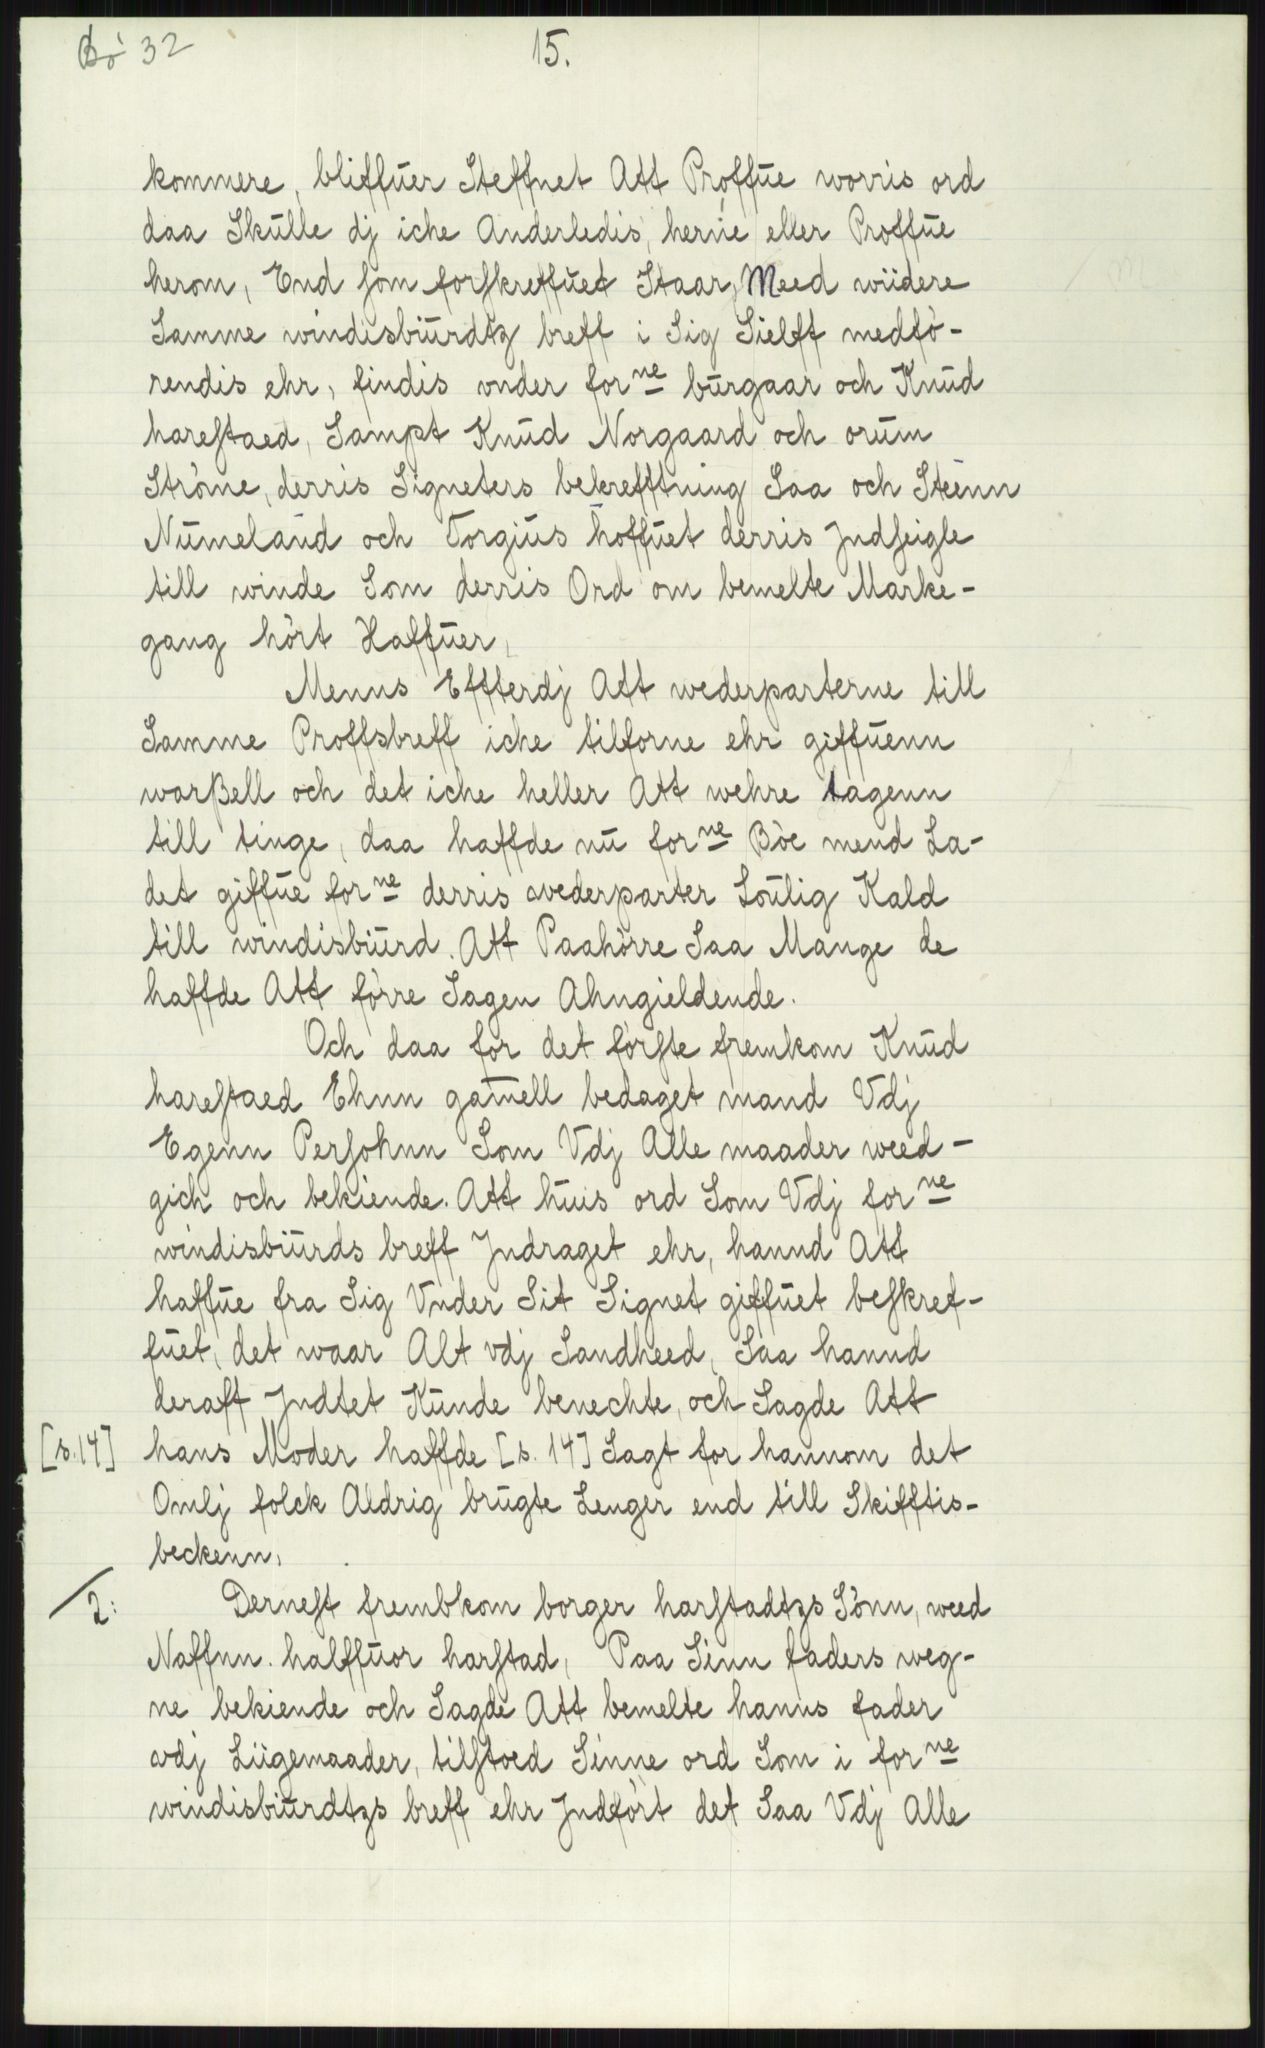 Bö 32
15.
kommere, bliffuer Steffnet Att Pröffue worris ord
daa Skulle dj iche Anderledis, herûe eller Proffue
herom, End som forskreffuet Staar, Meed wiidere
Samme windisbiurdtz breff i Sig Sielff medfö-
rendis ehr, findis vnder forne burgaar och Knud
harestaed, Sampt Knud Norgaard och orum
Ströme, derris Signeters bekrefftning Saa och Steenn
Numeland och Torgius hoffuet derris Indseigle
till winde Som derris Ord om bemelte Marke-
gang hört Haffuer,
Menns Effterdj Att wederparterne till
Samme Proffsbreff iche tilforne ehr giffuenn
warßell och det iche heller Att wehre tagenn
till tinge, daa haffde nu forne Böe mend La-
det giffue forne derris wederparter Loulig Kald
till windisbiurd. Att Paahörre Saa Mange de
haffde Attförre Sagen Ahngieldende.
Och daa for det förste fremkom Knud
harestaed Ehnn gam̄ell bedaget mand Vdj
Egenn Persohnn Som Vdj Alle maader weed-
gich och bekiende. Att huis ord Som Vdj forne
windisbiurds breff Jndraget ehr, hannd Att
haffue fra Sig Vnder Sit Signet giffuet beskref-
fuet, det waar Alt vdj Sandheed, Saa hannd
deraff Jndtet Kunde benechte, och Sagde Att
[s.14] hans Moder haffde [s. 14] Sagt for hannom det
Omlj folck Aldrig brugte Lenger end till Skifftis-
beckenn,
2: Dernest frembkom borger harstadtzs Sönn, weed
Naffnn. halffuor harstad, Paa Sinn faders weg-
ne bekiende och Sagde Att bemelte hanns fader
vdj Liigemaader, tilstoed Sinne ord Som i forne
windisbiurdtzs breff ehr Jndfört det Saa Vdj Alle